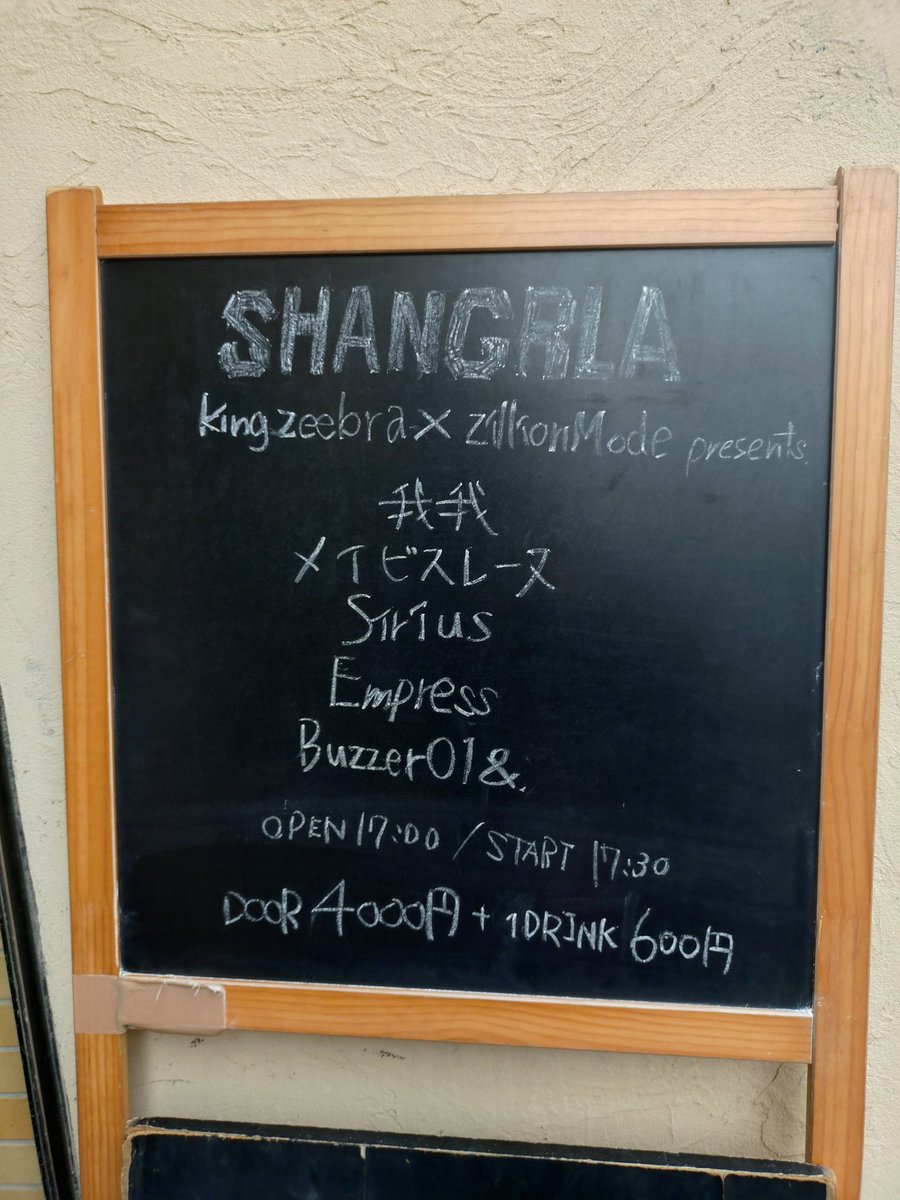 SHANGRLA
kingzeebra × zillionMode presents.
我我
メイビスレーヌ
Sirius
Empress
Buzzer01&.
OPEN 17:00 / START 17:30
DOOR 4000円 + 1DRINK 600円